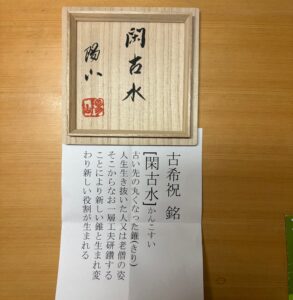 閑古水
陽水
古希祝 銘
【閑古水】かんこすい
古い先の丸くなった錐(きり)
人生生き抜いた人又は老僧の姿
そこからなお一層工夫研鑽する
ことにより新しい錐と生まれ変
わり新しい役割が生まれる